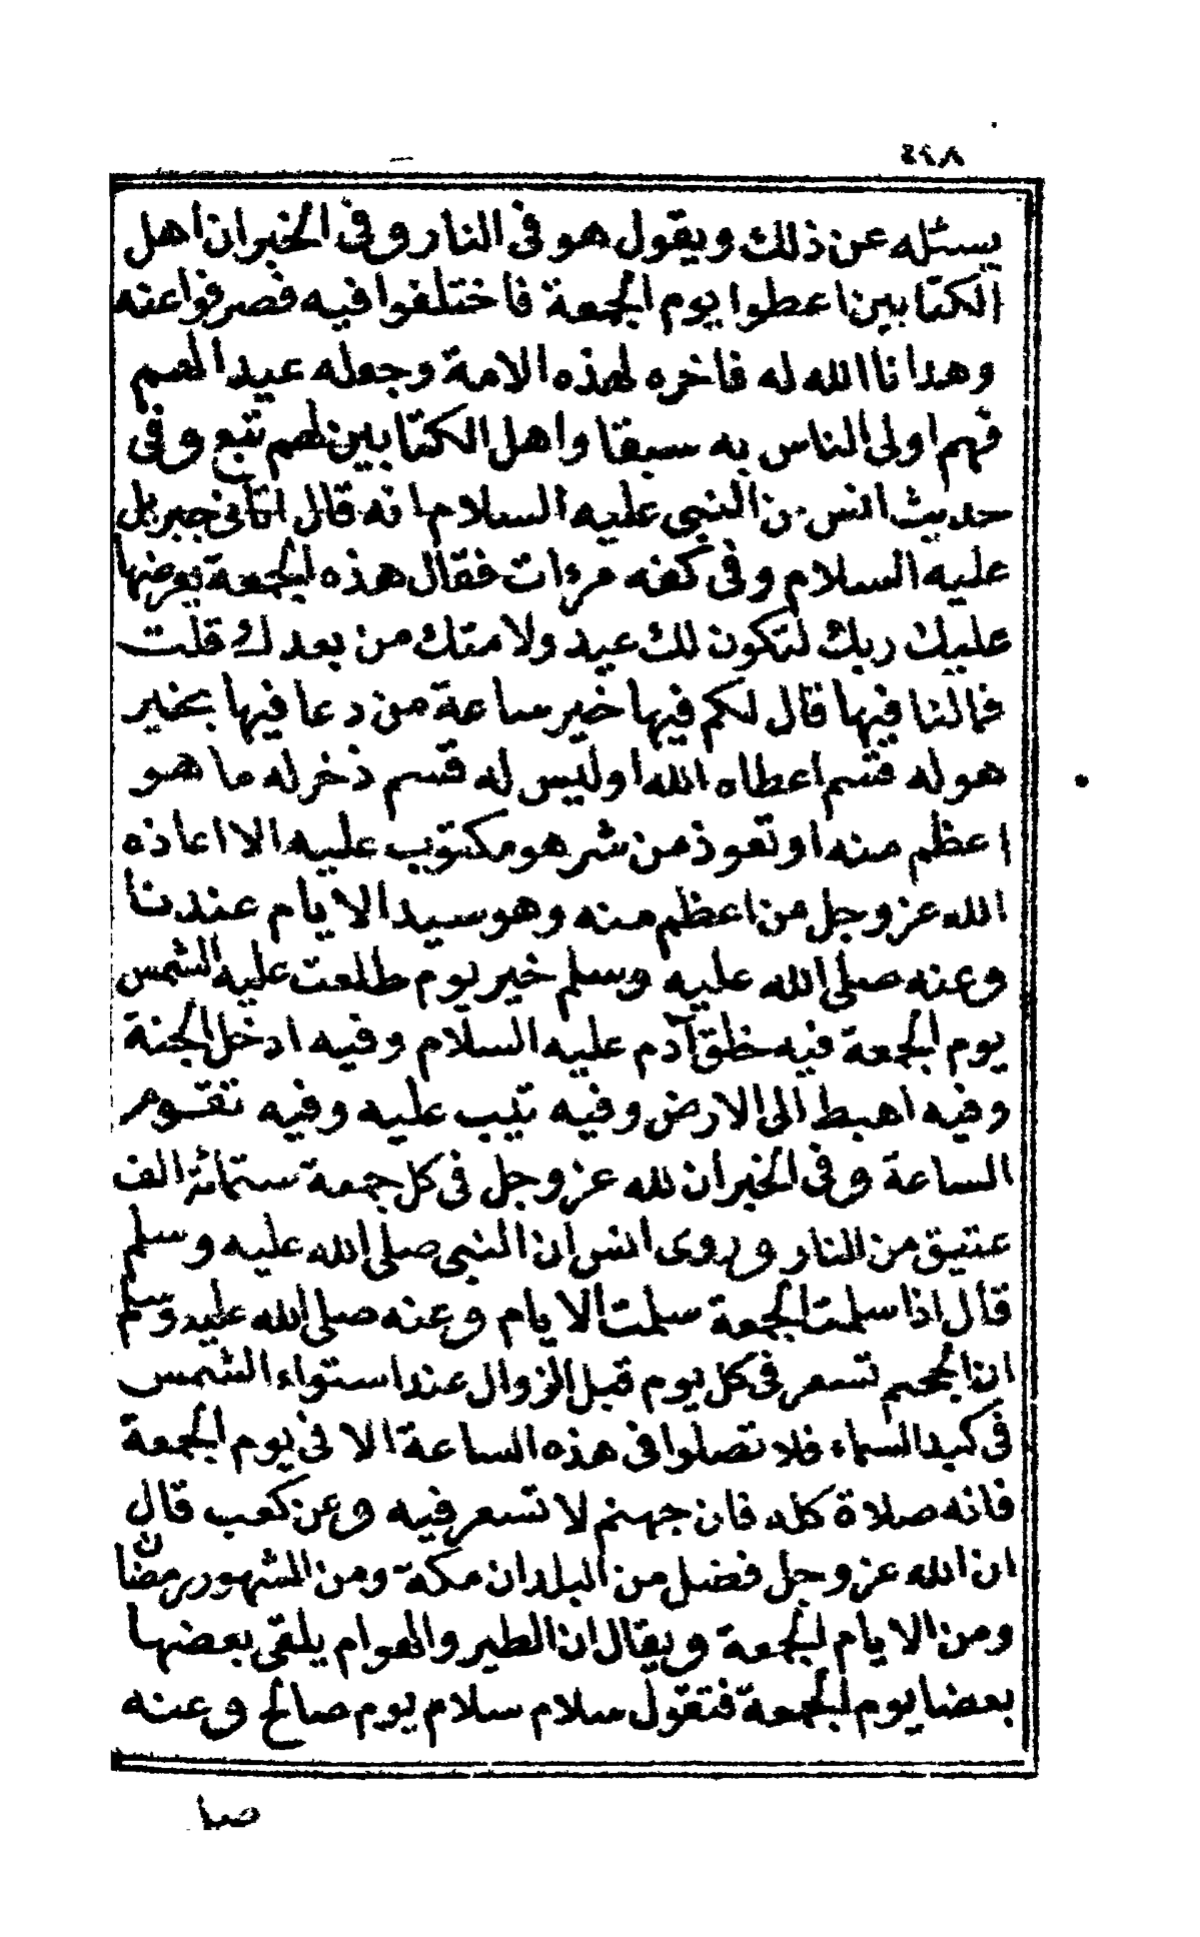 ٤٦٨
يسئله عن ذلك ويقول هو فى النار وفى الخبر ان اهل
الكتابين اعطوا يوم الجمعة فاختلفوا فيه فصرفوا عنه
وهدانا الله له فاخره لهذه الامة وجعله عيدا لهم
فهم اولى الناس به سبقا واهل الكتابين لهم تبع وفى
حديث انس عن النبى عليه السلام انه قال اتانى جبريل
عليه السلام وفى كفه مرءات فقال هذه الجمعة يعرضها
عليك ربك لتكون لك عيد ولامتك من بعدك قلت
فمالنا فيها قال لكم فيها خير ساعة من دعا فيها بخير
هو له قسم اعطاه الله او ليس له قسم ذخر له ما هو
اعظم منه او تعوذ من شر هو مكتوب عليه الا اعاذه
الله عز وجل من اعظم منه وهو سيد الايام عندنا
وعنه صلى الله عليه وسلم خير يوم طلعت عليه الشمس
يوم الجمعة فيه خلق آدم عليه السلام وفيه ادخل الجنة
وفيه اهبط الى الارض وفيه تيب عليه وفيه تقوم
الساعة وفى الخبر ان لله عز وجل فى كل جمعة ستمائة الف
عتيق من النار وروى انس ان النبى صلى الله عليه وسلم
قال اذا سلمت الجمعة سلمت الايام وعنه صلى الله عليه وسلم
ان الجحيم تسعر فى كل يوم قبل الزوال عند استواء الشمس
فى كبد السماء فلا تصلوا فى هذه الساعة الا فى يوم الجمعة
فانه صلاة كله فان جهنم لا تسعر فيه وعن كعب قال
ان الله عز وجل فضل من البلدان مكة ومن الشهور رمضان
ومن الايام الجمعة ويقال ان الطير والهوام يلقى بعضها
بعضا يوم الجمعة فتقول سلام سلام يوم صالح وعنه